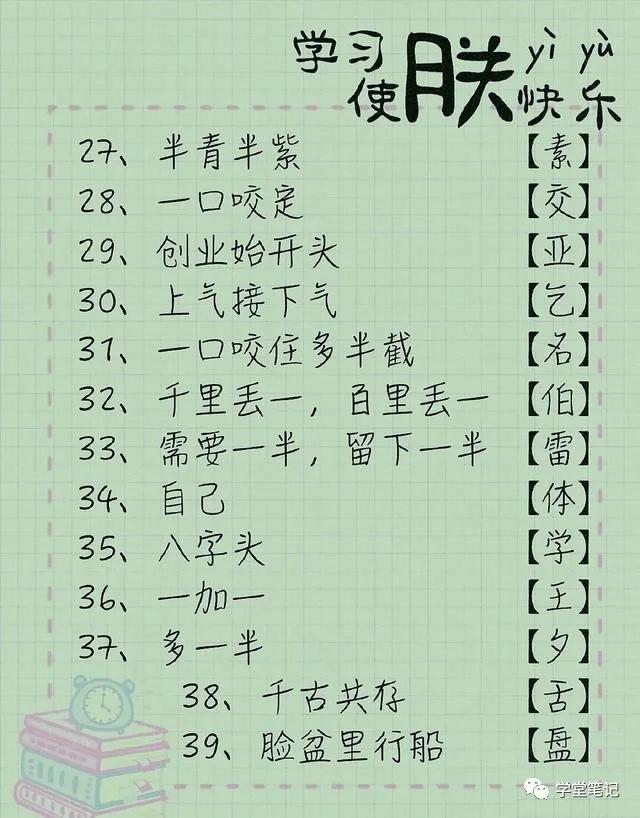 学习
使朕快乐
yì yù
27、半青半紫 【素】
28、一口咬定 【交】
29、创业始开头 【亚】
30、上气接下气 【乞】
31、一口咬住多半截 【名】
32、千里丢一，百里丢一 【伯】
33、需要一半，留下一半 【雷】
34、自己 【体】
35、八字头 【学】
36、一加一 【王】
37、多一半 【夕】
38、千古共存 【舌】
39、脸盆里行船 【盘】
学堂笔记